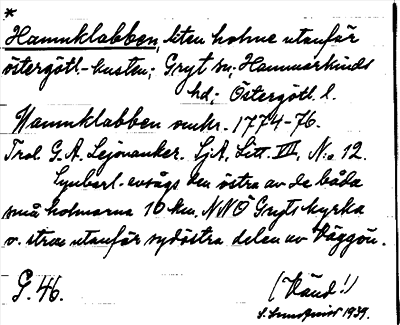 *
Hamnklabben, liten holme utanför
östergötl.-kusten; Gryt sn; Hammarkinds
hd; Östergötl. l.
Hamnklabben omkr. 1774-76.
Trol. G. A. Lejonanker. SjA, Litt. VII, N:o 12.
avsågs den östra av de båda
små holmarna 10 km. NNO Gryts kyrka
o. strax utanför sydöstra delen av Väggön.
G. 46.
(Vänd!)
S. 1939.